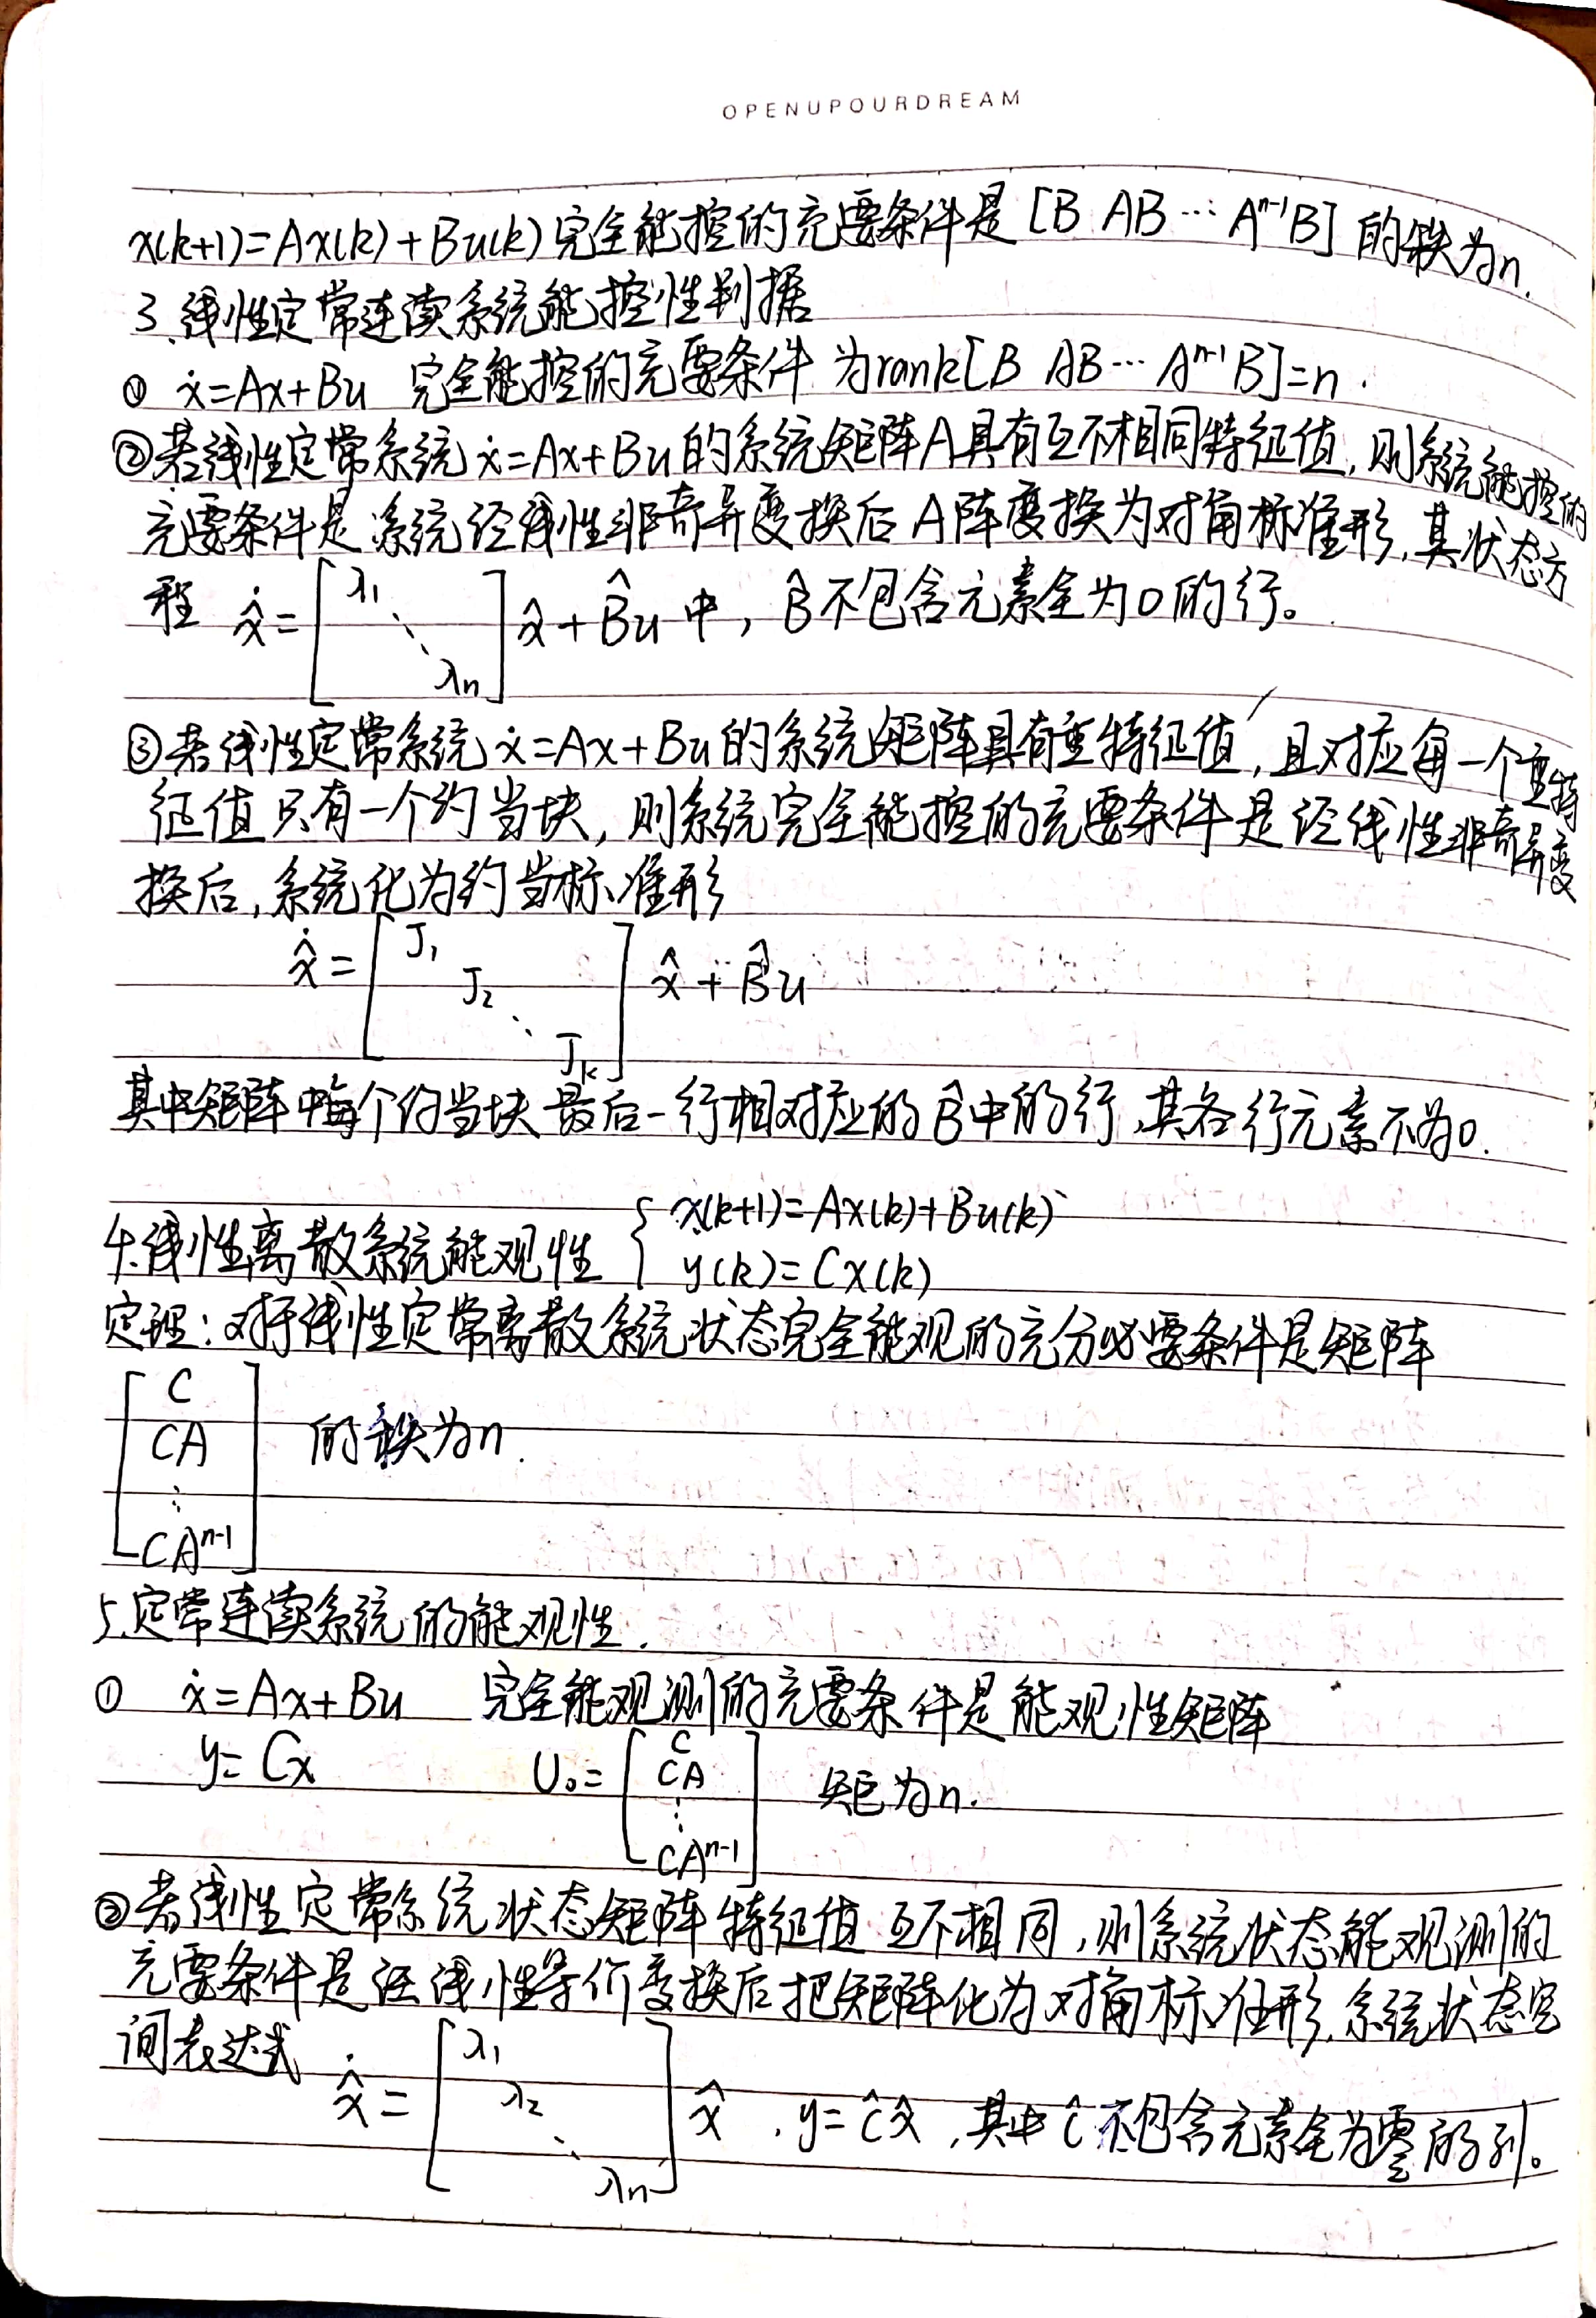 OPENUPOURDREAM
x(k+1)=Ax(k)+Bu(k)完全能控的充要条件是[B AB ⋯ Aⁿ⁻¹B] 的秩为n.
3.线性定常连续系统能控性判据
① ẋ=Ax+Bu 完全能控的充要条件 为rank[B AB⋯ Aⁿ⁻¹B]=n.
②若线性定常系统ẋ=Ax+Bu的系统矩阵A具有互不相同特征值,则系统能控的
充要条件是系统经线性非奇异变换后A阵变换为对角标准形,其状态方
程 x̂̇=[λ₁ ⋱ λn]x̂+B̂u中, B̂不包含元素全为0的行。
③若线性定常系统ẋ=Ax+Bu的系统矩阵具有重特征值,且对应每一个重特
征值只有一个约当块,则系统完全能控的充要条件是经线性非奇异变
换后,系统化为约当标准形
x̂̇=[J₁ J₂ ⋱ Jk] x̂+B̂u
其中矩阵中每个约当块最后一行相对应的B̂中的行,其各行元素不为0.
4.线性离散系统能观性 { x(k+1)=Ax(k)+Bu(k)
y(k)=Cx(k)
定理:对于线性定常离散系统状态完全能观的充分必要条件是矩阵
[C
CA 的秩为n.
⋮
CAⁿ⁻¹]
5.定常连续系统的能观性.
① ẋ=Ax+Bu 完全能观测的充要条件是能观性矩阵
y=Cx U₀=[C CA ⋮ CAⁿ⁻¹] 矩为n.
②若线性定常系统状态矩阵特征值互不相同,则系统状态能观测的
充要条件是经线性等价变换后把矩阵化为对角标准形.系统状态空
间表达式 x̂̇=[λ₁ λ₂ ⋱ λn]x̂ , y=ĉx̂,其中ĉ不包含元素全为零的列。